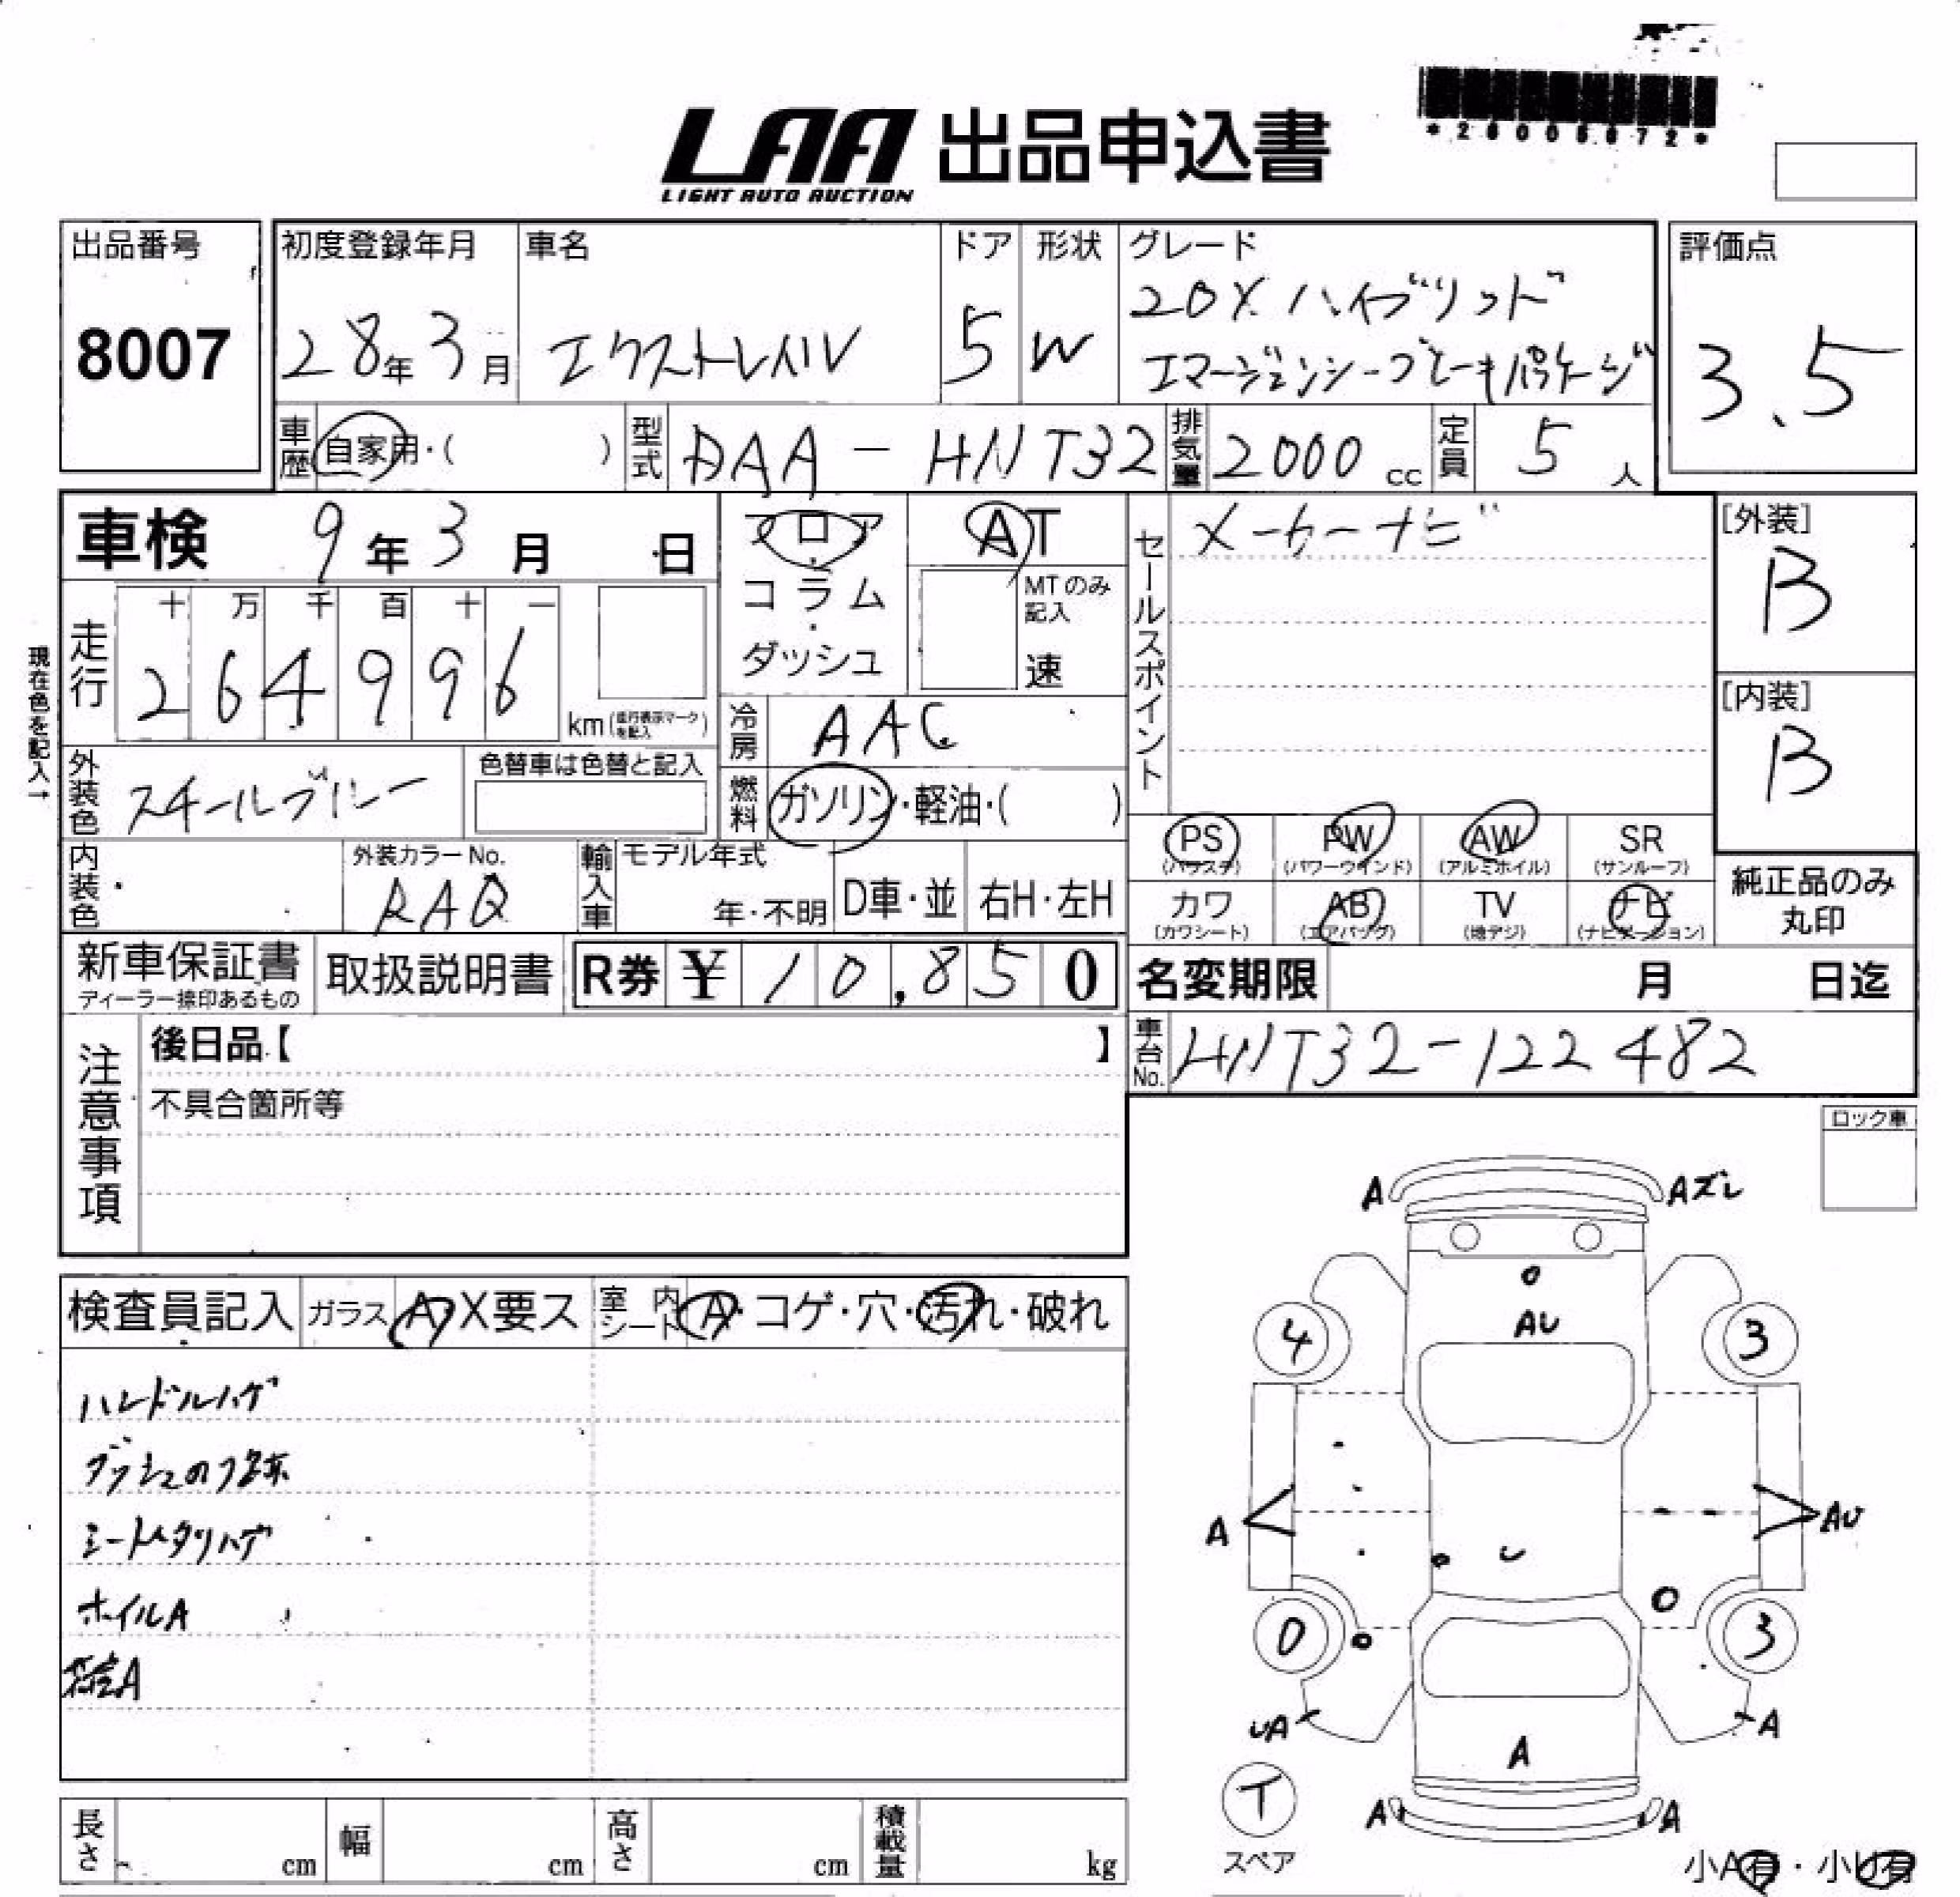 LAA 出品申込書
LIGHT AUTO AUCTION
出品番号
8007
初度登録年月
28年3月
車名
エクストレイル
ドア
5
形状
W
グレード
20X ハイブリッド
エマージェンシーブレーキパッケージ
評価点
3.5
車歴 自家用・( )
型式 DAA-HNT32
排気量 2000 cc
定員 5人
車検 9年3月 日
フロア・コラム・ダッシュ
AT
MTのみ記入 速
セールスポイント
メーカーナビ
[外装]
B
[内装]
B
現在色を記入→
走行 十 万 千 百 十 一
264996 km(走行表示マークを記入)
冷房 AAC
外装色 スチールブルー
色替車は色替と記入
燃料 ガソリン・軽油・( )
内装色
外装カラーNo.
RAQ
輸入車 モデル年式
年・不明
D車・並
右H・左H
PS (パワステ)
PW (パワーウインド)
AW (アルミホイル)
SR (サンルーフ)
カワ (カワシート)
AB (エアバッグ)
TV (地デジ)
ナビ (ナビゲーション)
純正品のみ丸印
新車保証書
ディーラー捺印あるもの
取扱説明書
R券 ¥ 10,850
名変期限 月 日迄
車台No. HNT32-122482
注意事項
後日品【 】
不具合箇所等
ロック車
検査員記入
ガラス A X要ス
室内シート A・コゲ・穴・汚れ・破れ
ハンドルハゲ
ダッシュのり跡
シートヘタリハゲ
ホイルA
A
A
Aズレ
AU
4
3
A
AU
U
0
3
UA
A
A
A
A
T
スペア
小A有・小U有
長さ cm
幅 cm
高さ cm
積載量 kg